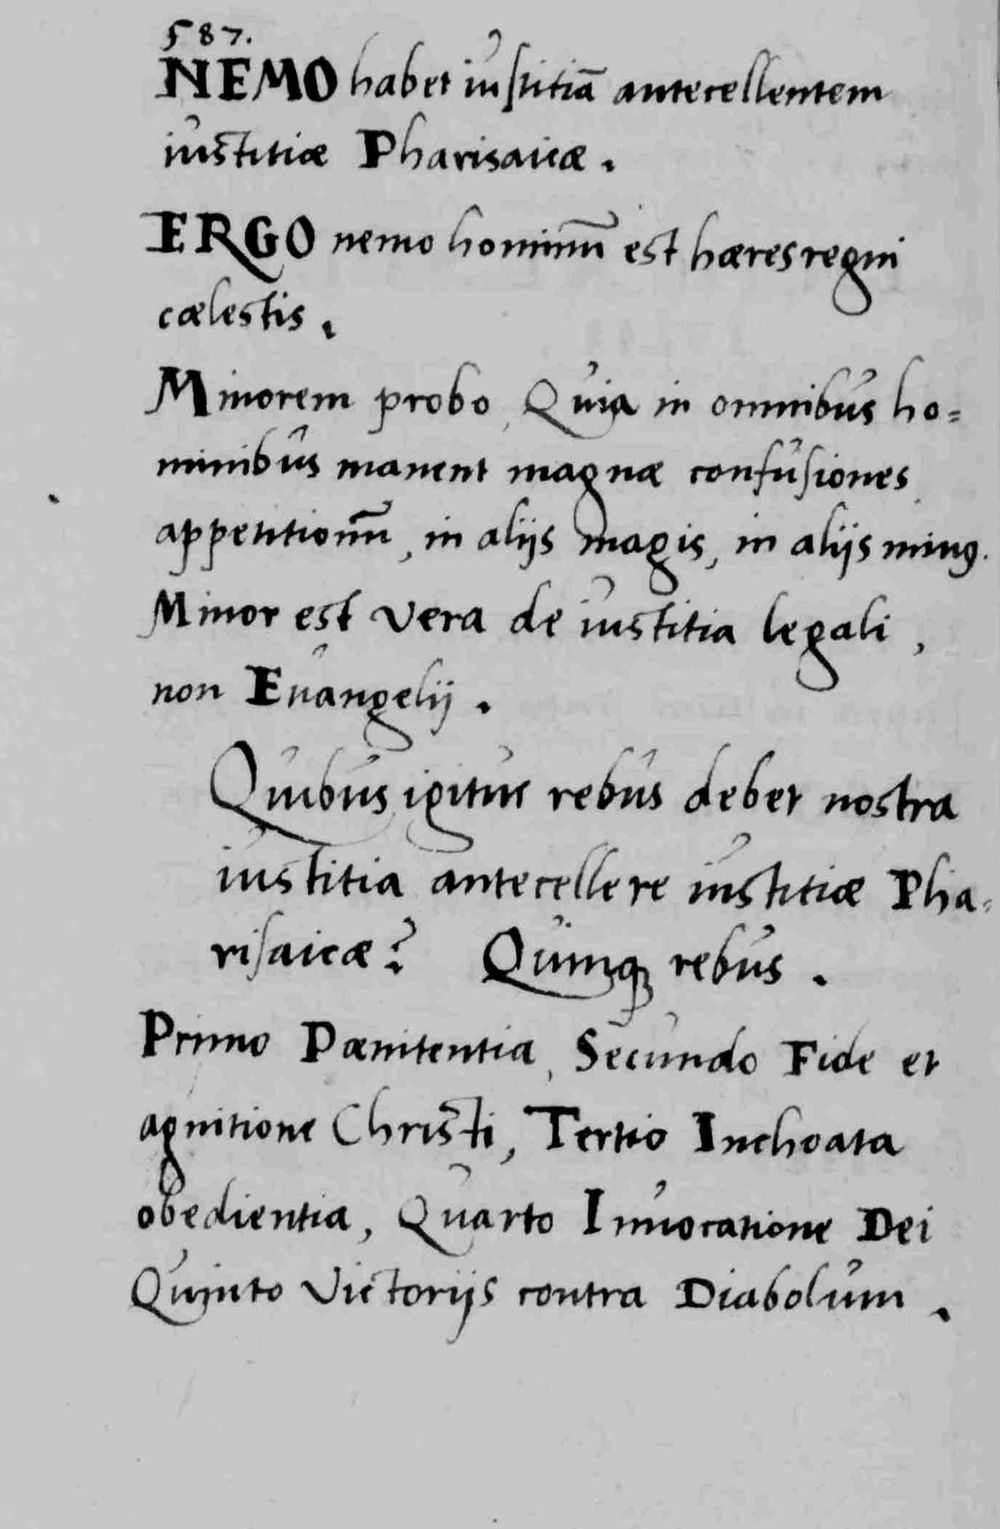 587.
NEMO habet iustitiã antecellentem
iustitiæ Pharisaicæ.
ERGO nemo hominũ est hæres regni
cælestis.
Minorem probo, Quia in omnibus ho=
minibus manent magnæ confusiones
appetitionũ, in alijs magis, in alijs minꝰ.
Minor est vera de iustitia legali,
non Euangelij.
Quibus igitur rebus debet nostra
iustitia antecellere iustitiæ Pha=
risaicæ? Quinqꝫ rebus.
Primo Pænitentia, Secundo Fide et
agnitione Christi, Tertio Inchoata
obedientia, Quarto Inuocatione Dei
Quinto Victorijs contra Diabolum.